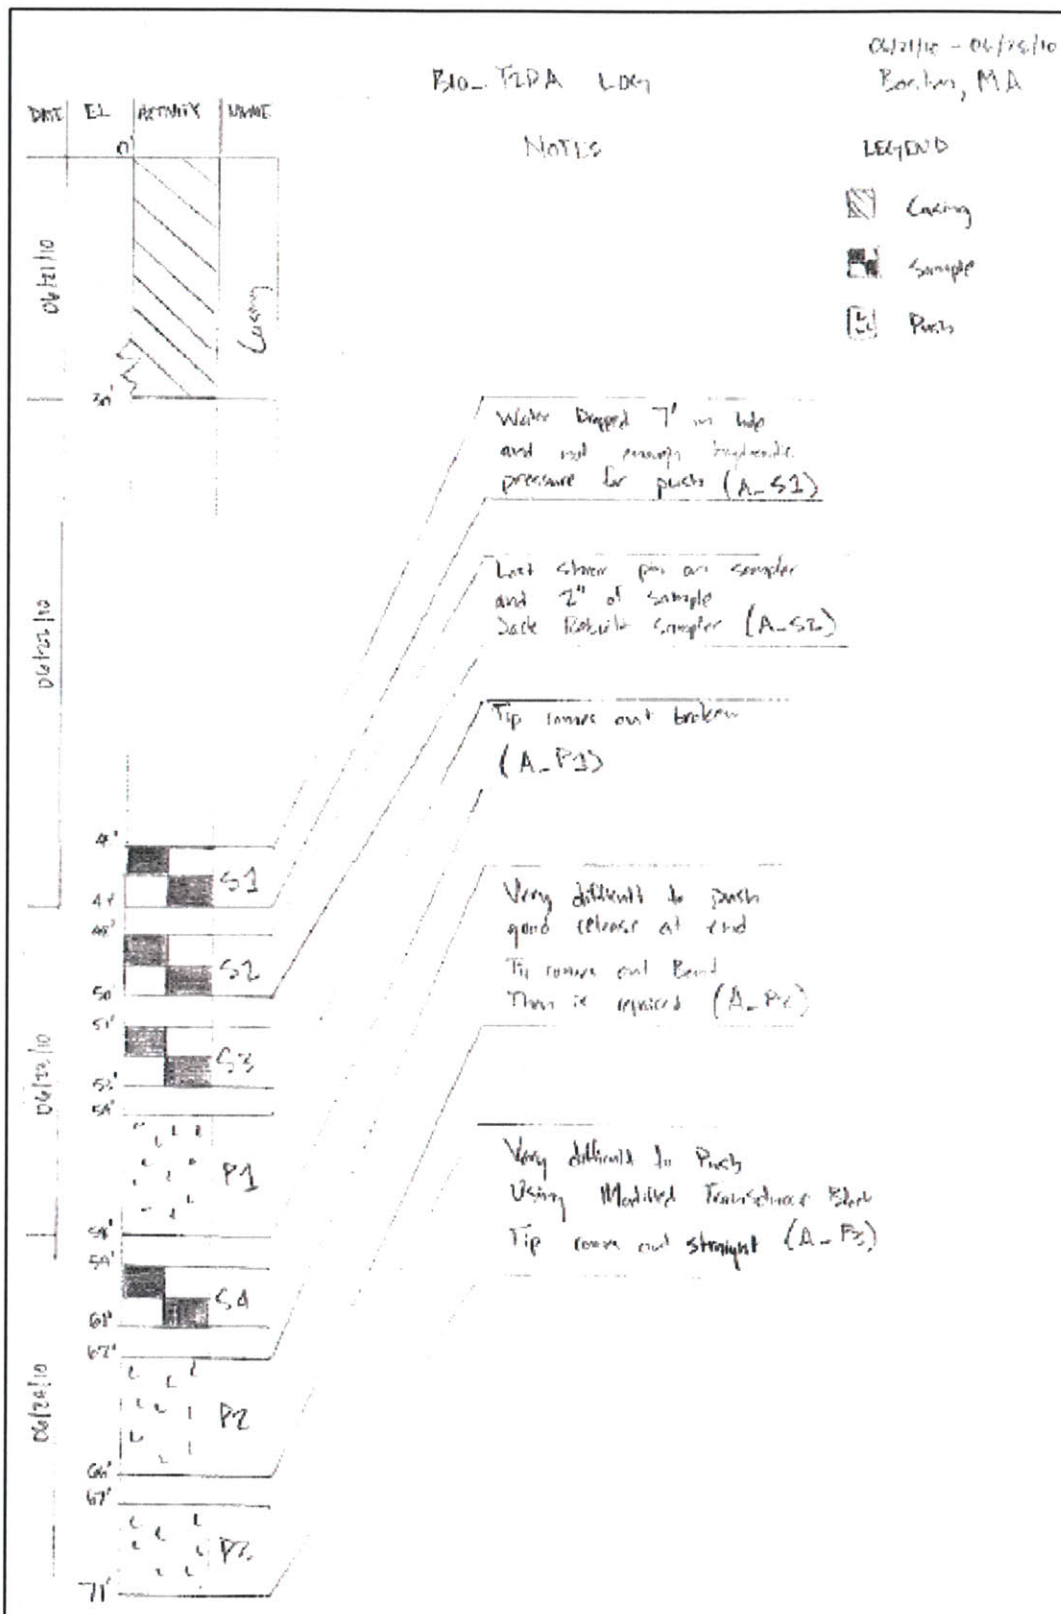 06/21/10 - 06/25/10
Boston, MA
LOG
DATE EL ACTIVITY NAME
NOTES
LEGEND
0'
Casing
Sample
Push
06/21/10
Casing
30'
Water Dropped 7' in hole
and not enough hydraulic
pressure for push (A_S1)
06/22/10
Lost shear pin on sampler
and 2" of sample
Jack Rebuilt Sampler (A_S2)
Tip comes out broken
(A_P1)
S1
47'
48'
S2
50'
51'
S3
Very difficult to push
good release at end
Tip comes out Bent
(A_P2)
54'
P1
Very difficult to Push
Using Modified Transducer Block
Tip comes out straight (A_P3)
59'
S4
61'
62'
06/24/10
P2
66'
67'
P3
71'